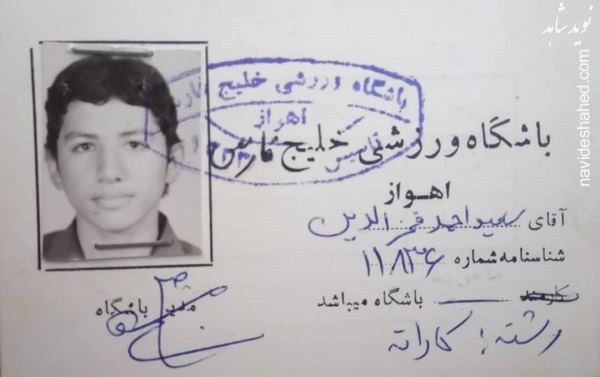 نوید شاهد
navideshahed.com
باشگاه ورزشی خلیج فارس
اهواز
باشگاه ورزشی خلیج فارس
اهواز
آقای سعید احمد فخرالدین
شناسنامه شماره ۱۱۸۳۶
کارمند باشگاه میباشد
رشته: کاراته
مدیر باشگاه